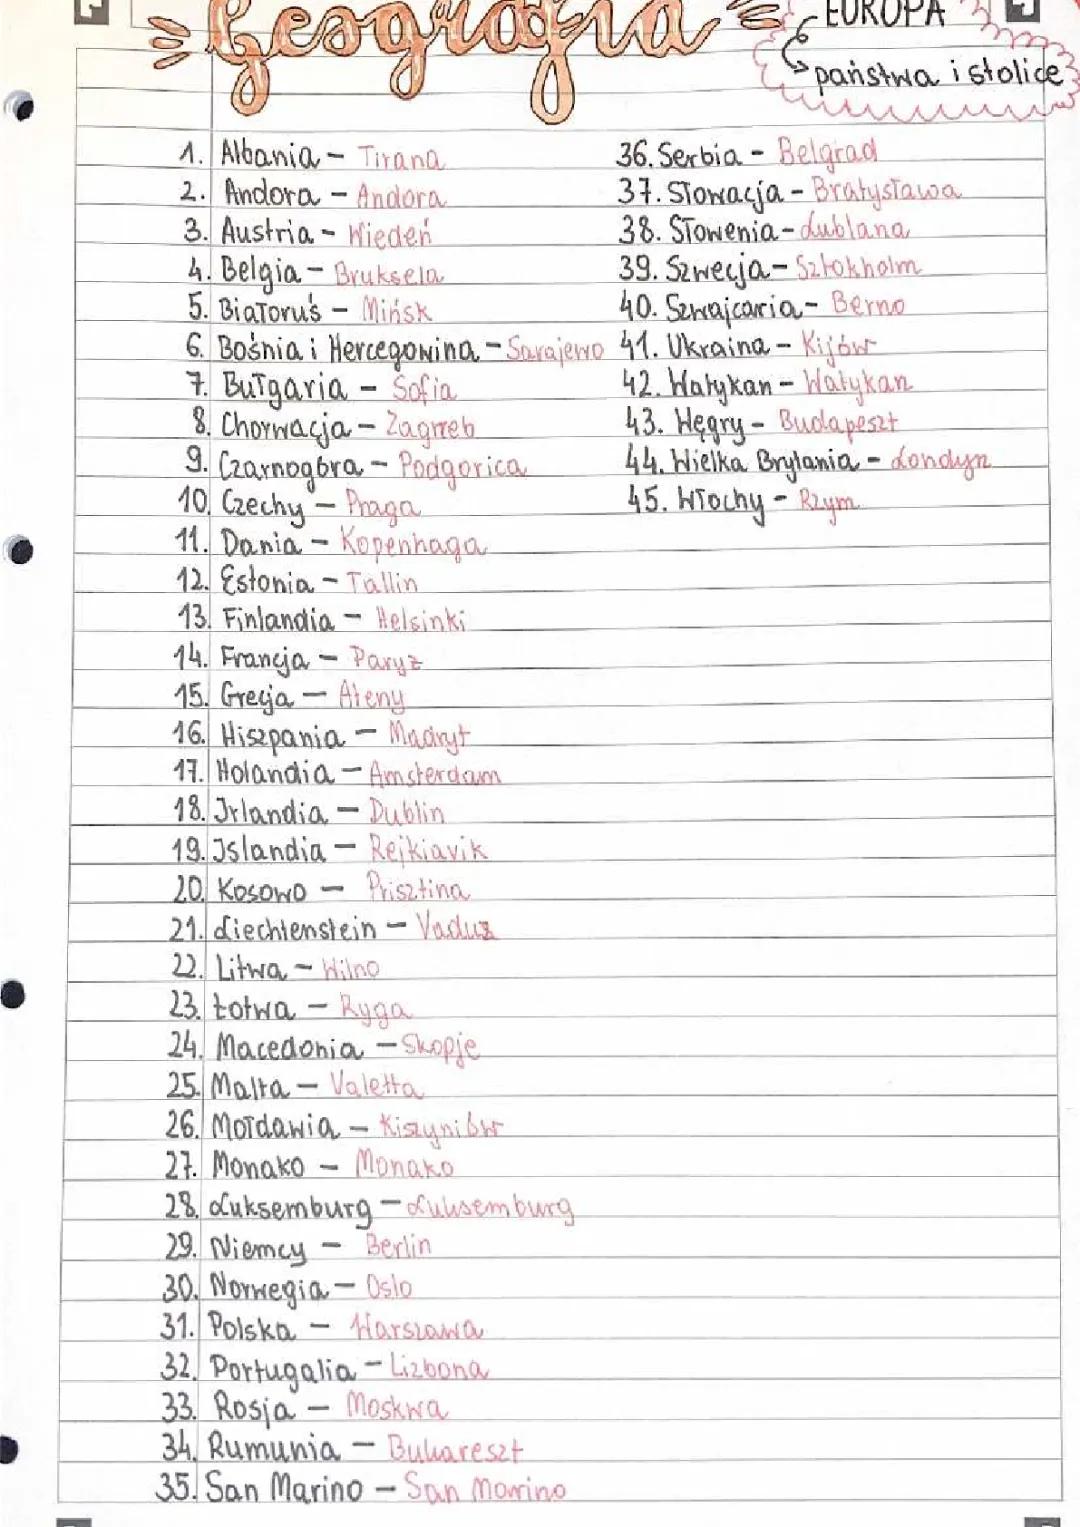 Geografia
EUROPA
państwa i stolice
1. Albania - Tirana
2. Andora - Andora
3. Austria - Wiedeń
4. Belgia - Bruksela
5. Białoruś - Mińsk
6. Bośnia i Hercegowina - Sarajewo
7. Bułgaria - Sofia
8. Chorwacja - Zagrzeb
9. Czarnogóra - Podgorica
10. Czechy - Praga
11. Dania - Kopenhaga
12. Estonia - Tallin
13. Finlandia - Helsinki
14. Francja - Paryż
15. Grecja - Ateny
16. Hiszpania - Madryt
17. Holandia - Amsterdam
18. Irlandia - Dublin
19. Islandia - Rejkiavik
20. Kosowo - Prisztina
21. Liechtenstein - Vaduz
22. Litwa - Wilno
23. Łotwa - Ryga
24. Macedonia - Skopje
25. Malta - Valetta
26. Mołdawia - Kiszyniów
27. Monako - Monako
28. Luksemburg - Luksemburg
29. Niemcy - Berlin
30. Norwegia - Oslo
31. Polska - Warszawa
32. Portugalia - Lizbona
33. Rosja - Moskwa
34. Rumunia - Bukareszt
35. San Marino - San Marino
36. Serbia - Belgrad
37. Słowacja - Bratysława
38. Słowenia - Lublana
39. Szwecja - Sztokholm
40. Szwajcaria - Berno
41. Ukraina - Kijów
42. Watykan - Watykan
43. Węgry - Budapeszt
44. Wielka Brytania - Londyn
45. Włochy - Rzym